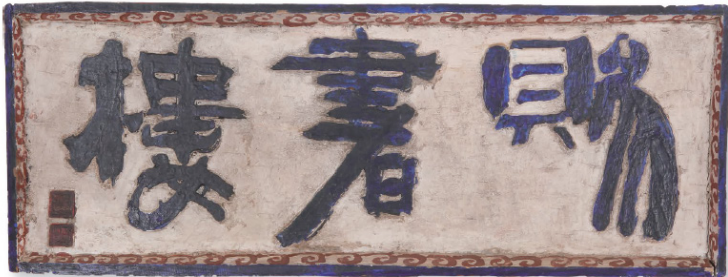 賜書樓